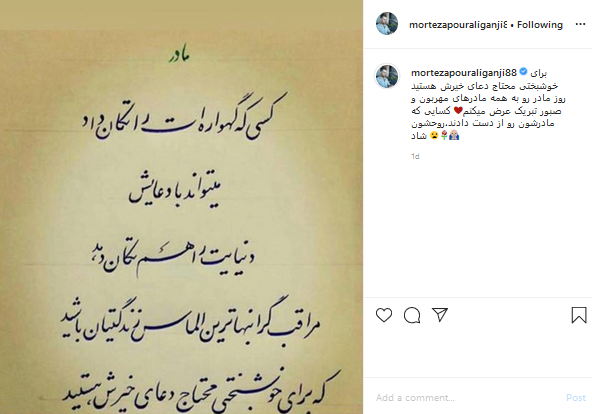 مادر
کسی که گهواره ات را تکان داد
میتواند با دعایش
دنیایت را هم تکان دهد
مراقب گرانبهاترین الماس زندگیتان باشید
که برای خوشبختی محتاج دعای خیرش هستید
mortezapouraliganji8 • Following
mortezapouraliganji88 برای
خوشبختی محتاج دعای خیرش هستید
روز مادر رو به همه مادرهای مهربون و
صبور تبریک عرض میکنم❤️ کسایی که
مادرشون رو از دست دادند.روحشون
شاد 😢🌹👵
1d
Add a comment...
Post